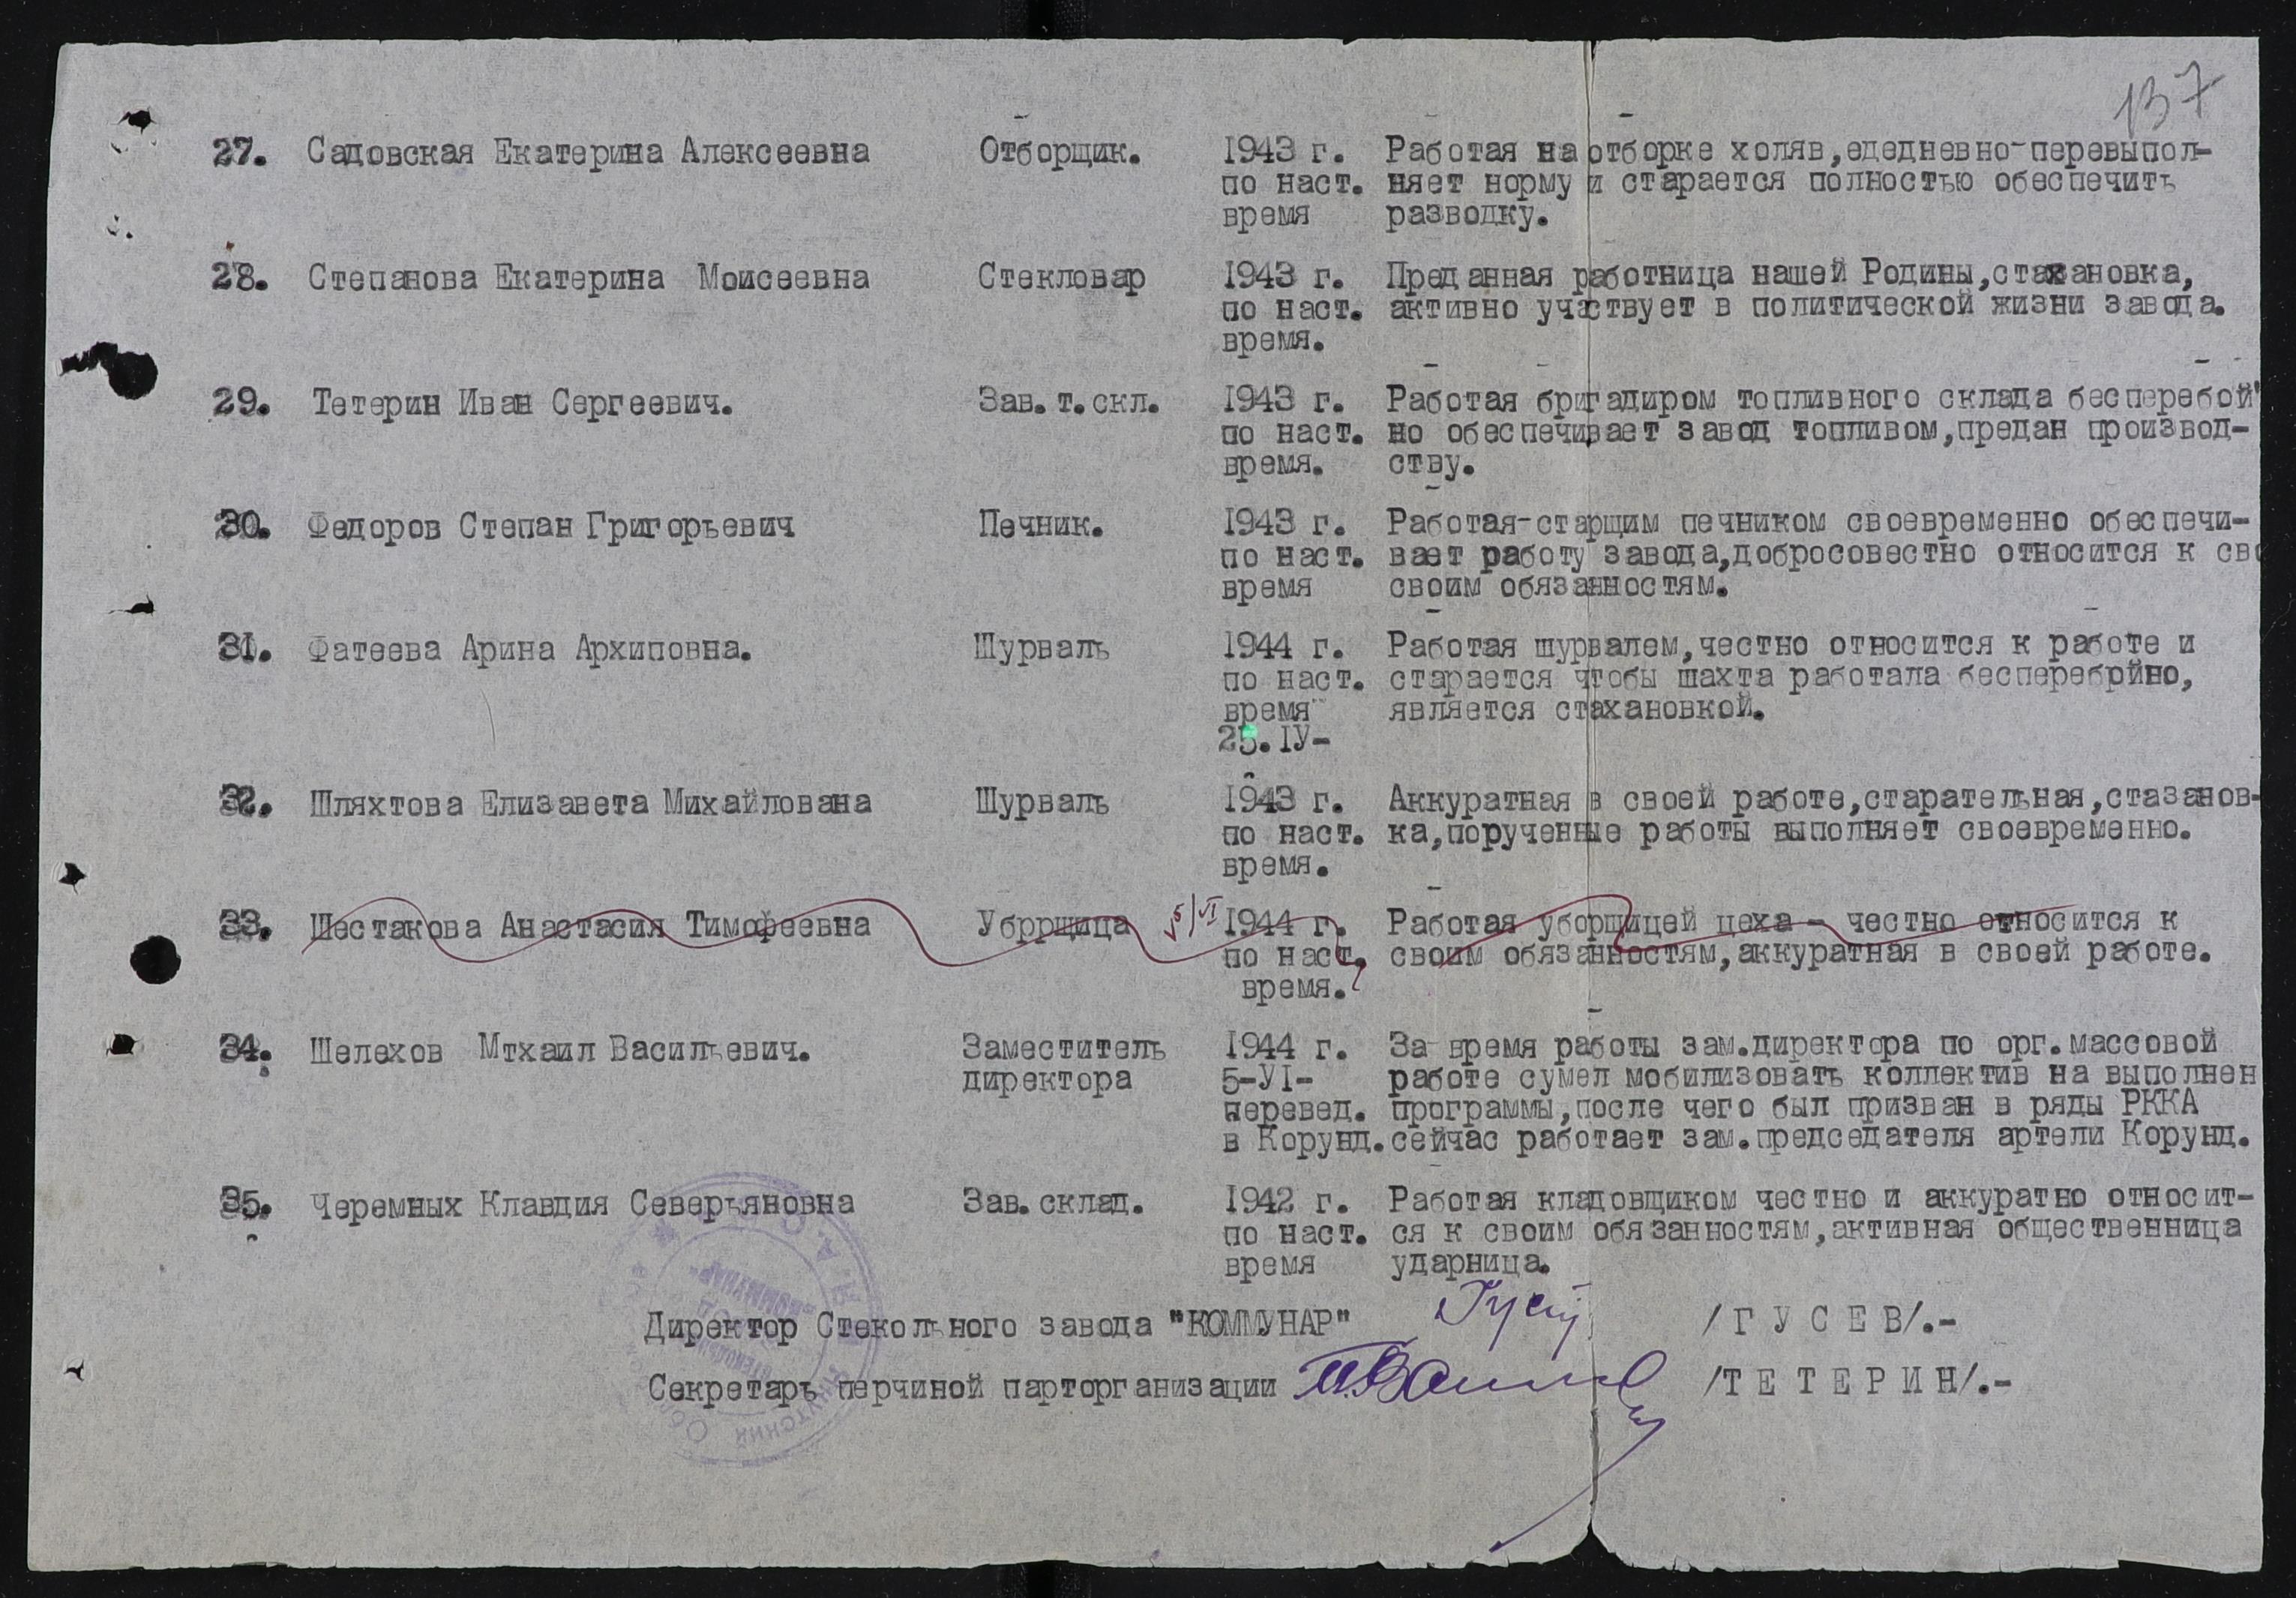 137
27. Садовская Екатерина Алексеевна Отборщик. 1943 г. Работая на отборке холяв,едедневно-перевыпол-
по наст. няет норму и старается полностью обеспечить
время разводку.
28. Степанова Екатерина Моисеевна Стекловар 1943 г. Преданная работница нашей Родины,стахановка,
по наст. активно участвует в политической жизни завода.
время.
29. Тетерин Иван Сергеевич. Зав.т.скл. 1943 г. Работая бригадиром топливного склада бесперебой
по наст. но обеспечивает завод топливом,предан производ-
время. ству.
30. Федоров Степан Григорьевич Печник. 1943 г. Работая-старщим печником своевременно обеспечи-
по наст. вает работу завода,добросовестно относится к сво
время своим обязанностям.
31. Фатеева Арина Архиповна. Шурваль 1944 г. Работая шурвалем,честно относится к работе и
по наст. старается чтобы шахта работала бесперебрйно,
время является стахановкой.
25.IУ-
32. Шляхтова Елизавета Михайлована Шурваль 1943 г. Аккуратная в своей работе,старательная,стазанов-
по наст. ка,порученные работы выполняет своевременно.
время.
33. Шестакова Анастасия Тимофеевна Убррщица 5/VI 1944 г. Работая уборщицей цеха - честно относится к
по наст. своим обязанностям,аккуратная в своей работе.
время.
34. Шелехов Мтхаил Васильевич. Заместитель 1944 г. За время работы зам.директора по орг.массовой
директора 5-УI- работе сумел мобилизовать коллектив на выполнен
перевед. программы,после чего был призван в ряды РККА
в Корунд. сейчас работает зам.председателя артели Корунд.
35. Черемных Клавдия Северьяновна Зав.склад. 1942 г. Работая кладовщиком честно и аккуратно относит-
по наст. ся к своим обязанностям,активная общественница
время ударница.
Директор Стекольного завода "КОММУНАР" Гусев /Г У С Е В/.-
Секретарь перчиной парторганизации /Т Е Т Е Р И Н/.-
"КОММУНАР"